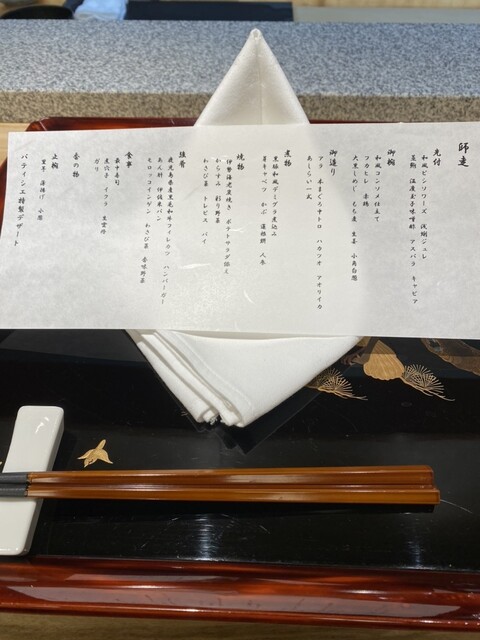 師走
先付
和風ビシソワーズ 浅蜊ジュレ
蓬麩 温度玉子味噌酢 アスパラ キャビア
御椀
和風コンソメ仕立て
フカヒレ 赤鶏
大黒しめじ もち麦 生姜 小角白葱
御造り
アラ 本まぐろ中トロ ハガツオ アオリイカ
あしらい一式
煮物
黒豚和風デミグラ煮込み
芽キャベツ かぶ 蓮根餅 人参
焼物
伊勢海老黄焼き ポテトサラダ添え
からすみ 彩り野菜
わさび菜 トレビス パイ
強肴
鹿児島県産黒毛和牛フィレカツ ハンバーガー
あん肝 伊予米パン
モロッコインゲン わさび菜 香味野菜
食事
寿す寿司
煮穴子 イクラ 生雲丹
ガリ
香の物
止椀
里芋 湯揚げ 小葱
パティシエ特製デザート